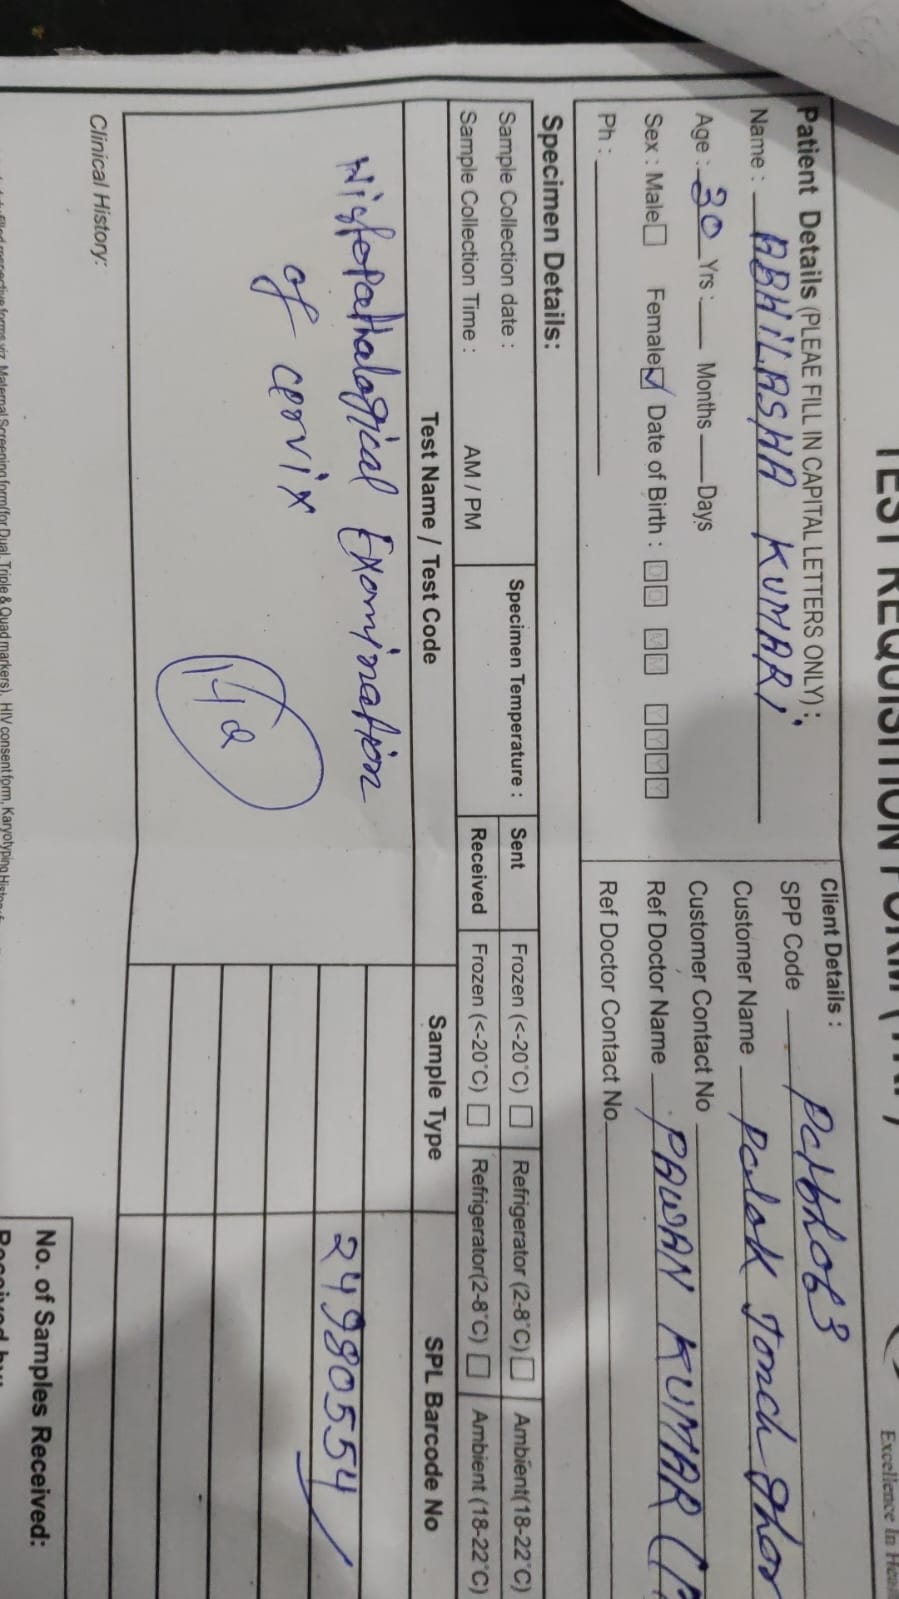 TEST REQUISITION FORM (TRF)
Excellence In Heal
Patient Details (PLEAE FILL IN CAPITAL LETTERS ONLY) :
Name : ABHILASHA KUMARI
Age : 30 Yrs : Months Days
Sex : Male Female Date of Birth : D D M M Y Y Y Y
Ph :
Client Details :
SPP Code
Customer Name Palak Janch Ghar
Customer Contact No
Ref Doctor Name PAWAN KUMAR (
Ref Doctor Contact No
Specimen Details:
Sample Collection date : Specimen Temperature : Sent Frozen (<-20°C) Refrigerator (2-8°C) Ambient(18-22°C)
Sample Collection Time : AM / PM Received Frozen (<-20°C) Refrigerator(2-8°C) Ambient (18-22°C)
Test Name / Test Code Sample Type SPL Barcode No
Histopathalogical Examination 24980554
of cervix
Clinical History:
No. of Samples Received:
Received by:
forms viz. Maternal Screening form(for Dual, Triple & Quad markers), HIV consent form, Karyotyping History